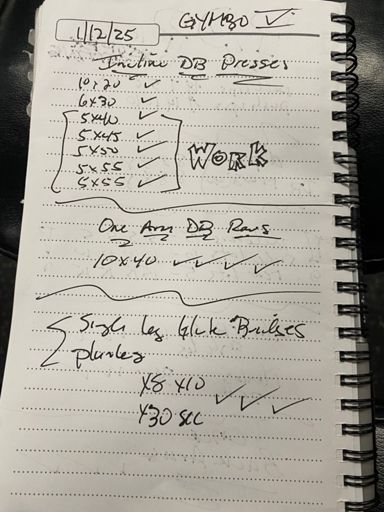 1/12/25
GYMBO V ✓
Incline DB Presses
10x20 ✓
6x30 ✓
5x40 ✓
5x45 ✓
5x50 ✓
5x55 ✓
5x55 ✓
WORK
One Arm DB Rows
10x40 ✓ ✓ ✓ ✓
Single leg Glute Bridges
planks
x8 x10
x30 sec ✓ ✓ ✓